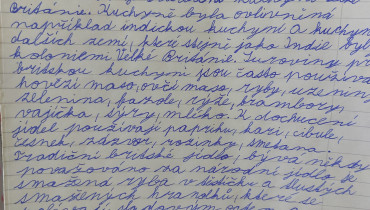 Británie. Kuchyně byla ovlivněna
například indickou kuchyní a kuchyní
dalších zemí, které stejně jako Indie byly
koloniemi Velké Británie. Suroviny pro
britskou kuchyni jsou často používá
hovězí maso, ovčí maso, ryby, uzeniny
zelenina, fazole, rýže, brambory,
vajíčka, sýry, mléko. K dochucení
jídel používají papriku, kari, cibule,
česnek, zázvor, rozinky, smetana.
Tradiční britské jídlo, bývá někdy
považováno za národní jídlo se
smažená ryba v těstíčku a tlustých
smažených hranolků, které se